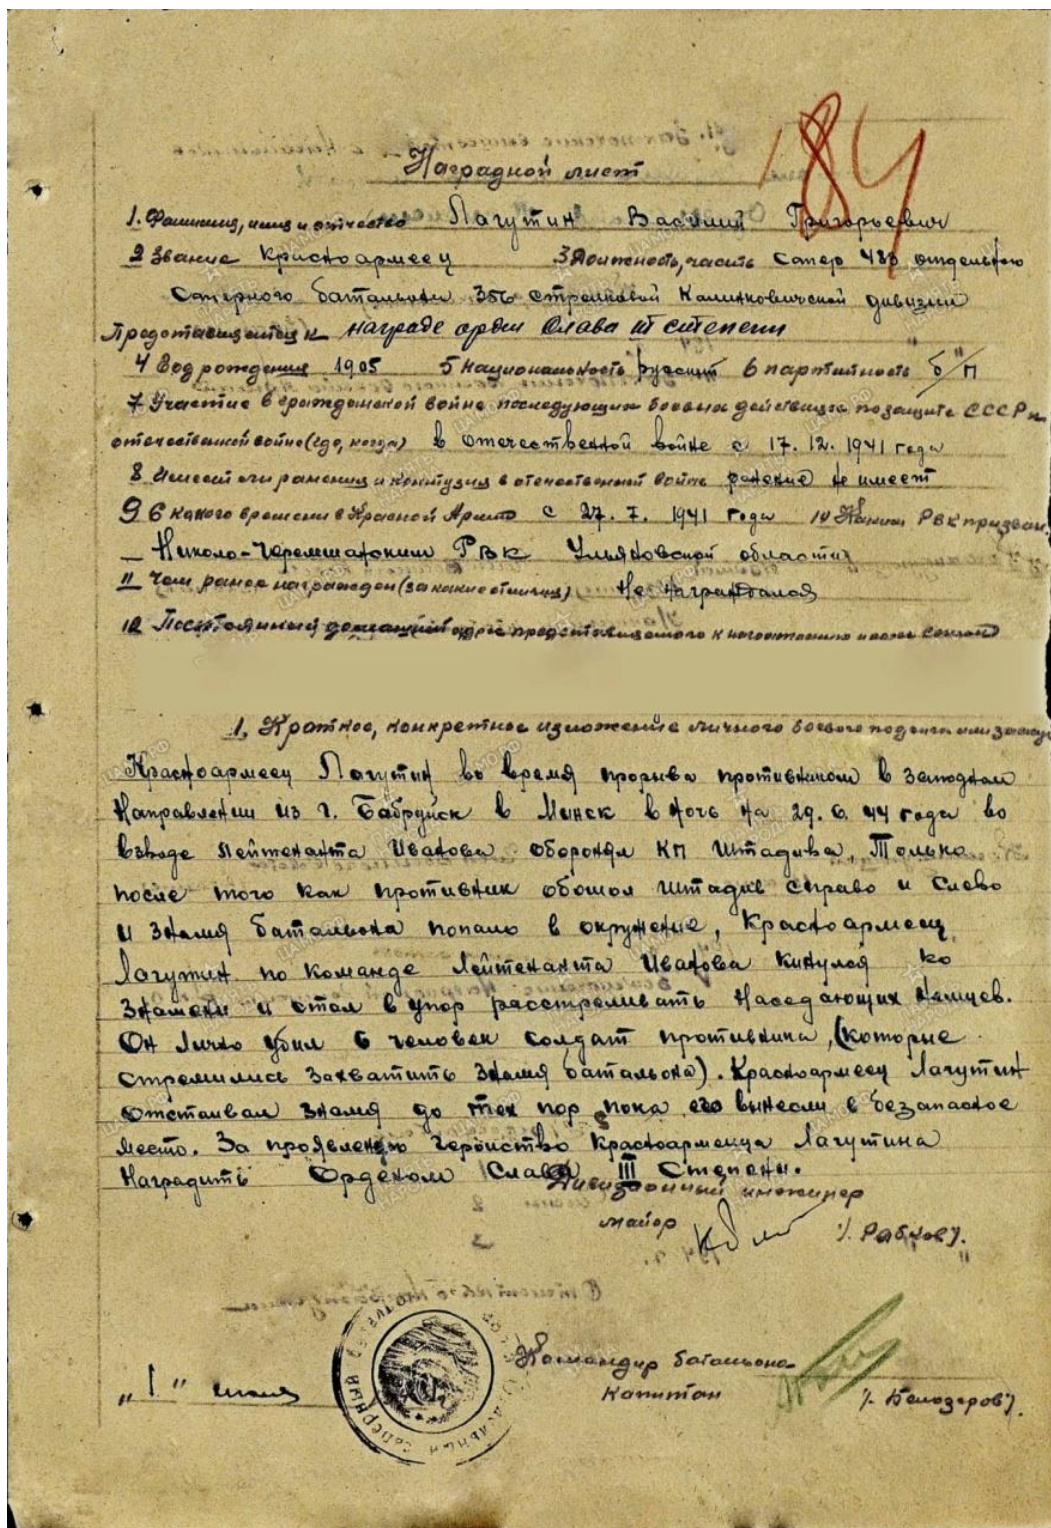 184
Наградной лист
1. Фамилия, имя и отчество Лагутин Василий Григорьевич
2 Звание Красноармеец 3 Должность, часть Сапер 483 отдельного
Саперного батальона 356 стрелковой Калинковичской дивизии
Представляется к награде орден Слава III степени
4 Год рождения 1905 5 Национальность русский 6 партийность б/п
7 Участие в гражданской войне последующих боевых действиях по защите СССР и
отечественной войне (где, когда) в отечественной войне с 17.12.1941 года
8 Имеет ли ранения и контузии в отечественной войне ранение не имеет
9 С какого времени в Красной Армии с 27.7.1941 года 10 Каким РВК призван
Николо-Черемшанским РВК Ульяновской области
11 Чем ранее награжден (за какие отличия) Не награждался
12 Постоянный домашний адрес представляемого к награждению и семьи
1. Краткое, конкретное изложение личного боевого подвига или заслуг
Красноармеец Лагутин во время прорыва противником в западном
Направлении из г. Бабруйск в Минск в ночь на 29.6.44 года во
взводе лейтенанта Иванова оборонял КП Штадива, Только
после того как противник обошол штадив справо и слево
и знамя батальона попало в окружение, Красноармеец
Лагутин по команде Лейтенанта Иванова кинулся ко
знамени и стал в упор расстреливать наседающих немцев.
Он лично убил 6 человек солдат противника, (которые
стремились захватить знамя батальона). Красноармеец Лагутин
отстаивал знамя до тех пор пока его вынесли в безапасное
место. За проявленную героиство красноармейца Лагутина
наградить Орденом Слава III Степени.
Дивизионный инженер
майор /. Рабков /.
Командир батальона
"1" июля капитан /. Белозеров /.